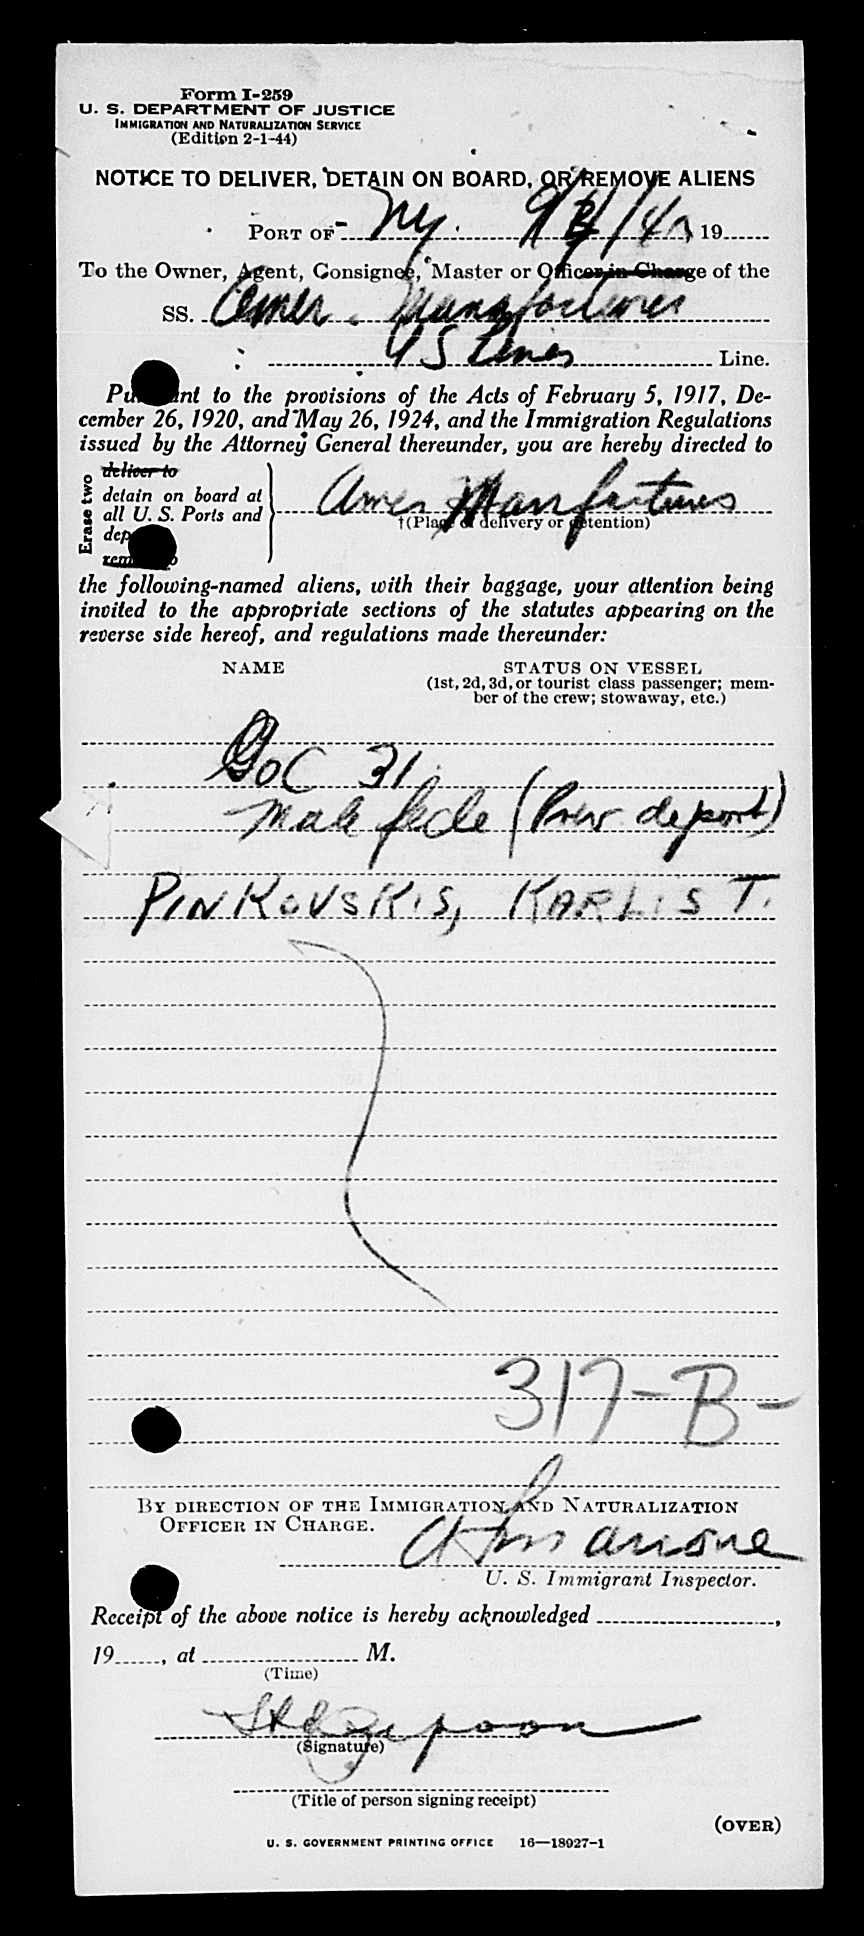 Form I-259
U. S. DEPARTMENT OF JUSTICE
IMMIGRATION AND NATURALIZATION SERVICE
(Edition 2-1-44)
NOTICE TO DELIVER, DETAIN ON BOARD, OR REMOVE ALIENS
PORT OF NY. 19
To the Owner, Agent, Consignee, Master or Officer in Charge of the
SS. Amer. Manufacturer
U S Lines Line.
Pursuant to the provisions of the Acts of February 5, 1917, De-
cember 26, 1920, and May 26, 1924, and the Immigration Regulations
issued by the Attorney General thereunder, you are hereby directed to
Erase two
deliver to
detain on board at
all U. S. Ports and
Amer Manfactures
†(Place of delivery or detention)
the following-named aliens, with their baggage, your attention being
invited to the appropriate sections of the statutes appearing on the
reverse side hereof, and regulations made thereunder:
NAME STATUS ON VESSEL
(1st, 2d, 3d, or tourist class passenger; mem-
ber of the crew; stowaway, etc.)
31
Mala fide (Prev deport)
PINKOVSKIS, KARLIS T.
317-B-
BY DIRECTION OF THE IMMIGRATION AND NATURALIZATION
OFFICER IN CHARGE.
U. S. Immigrant Inspector.
Receipt of the above notice is hereby acknowledged ,
19 , at M.
(Time)
(Signature)
(Title of person signing receipt)
(OVER)
U. S. GOVERNMENT PRINTING OFFICE 16—18927-1